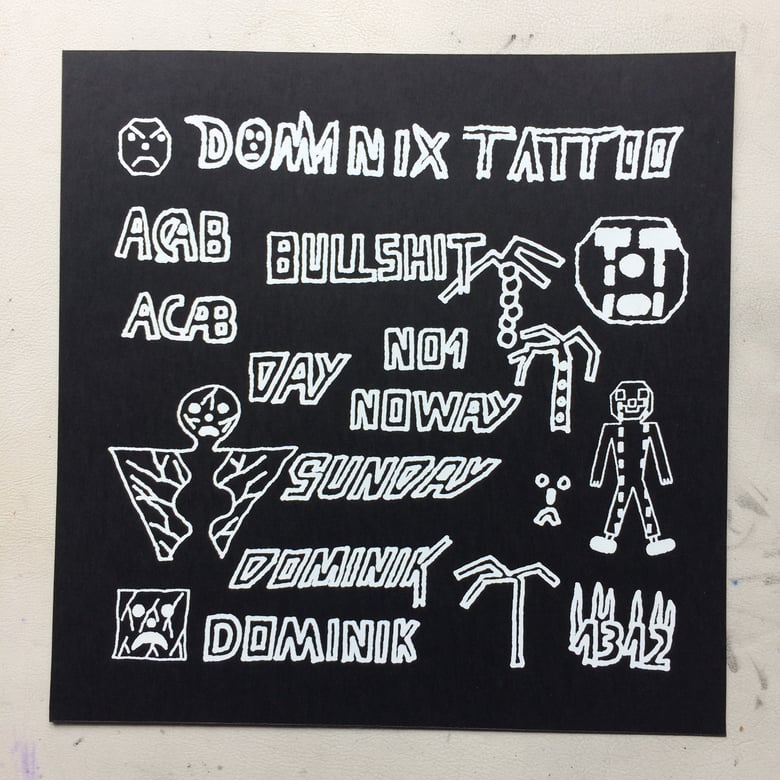 DOMINIX TATTOO
ACAB
BULLSHIT
ACAB
NO1
DAY
NOWAY
SUNDAY
DOMINIK
DOMINIK
1312